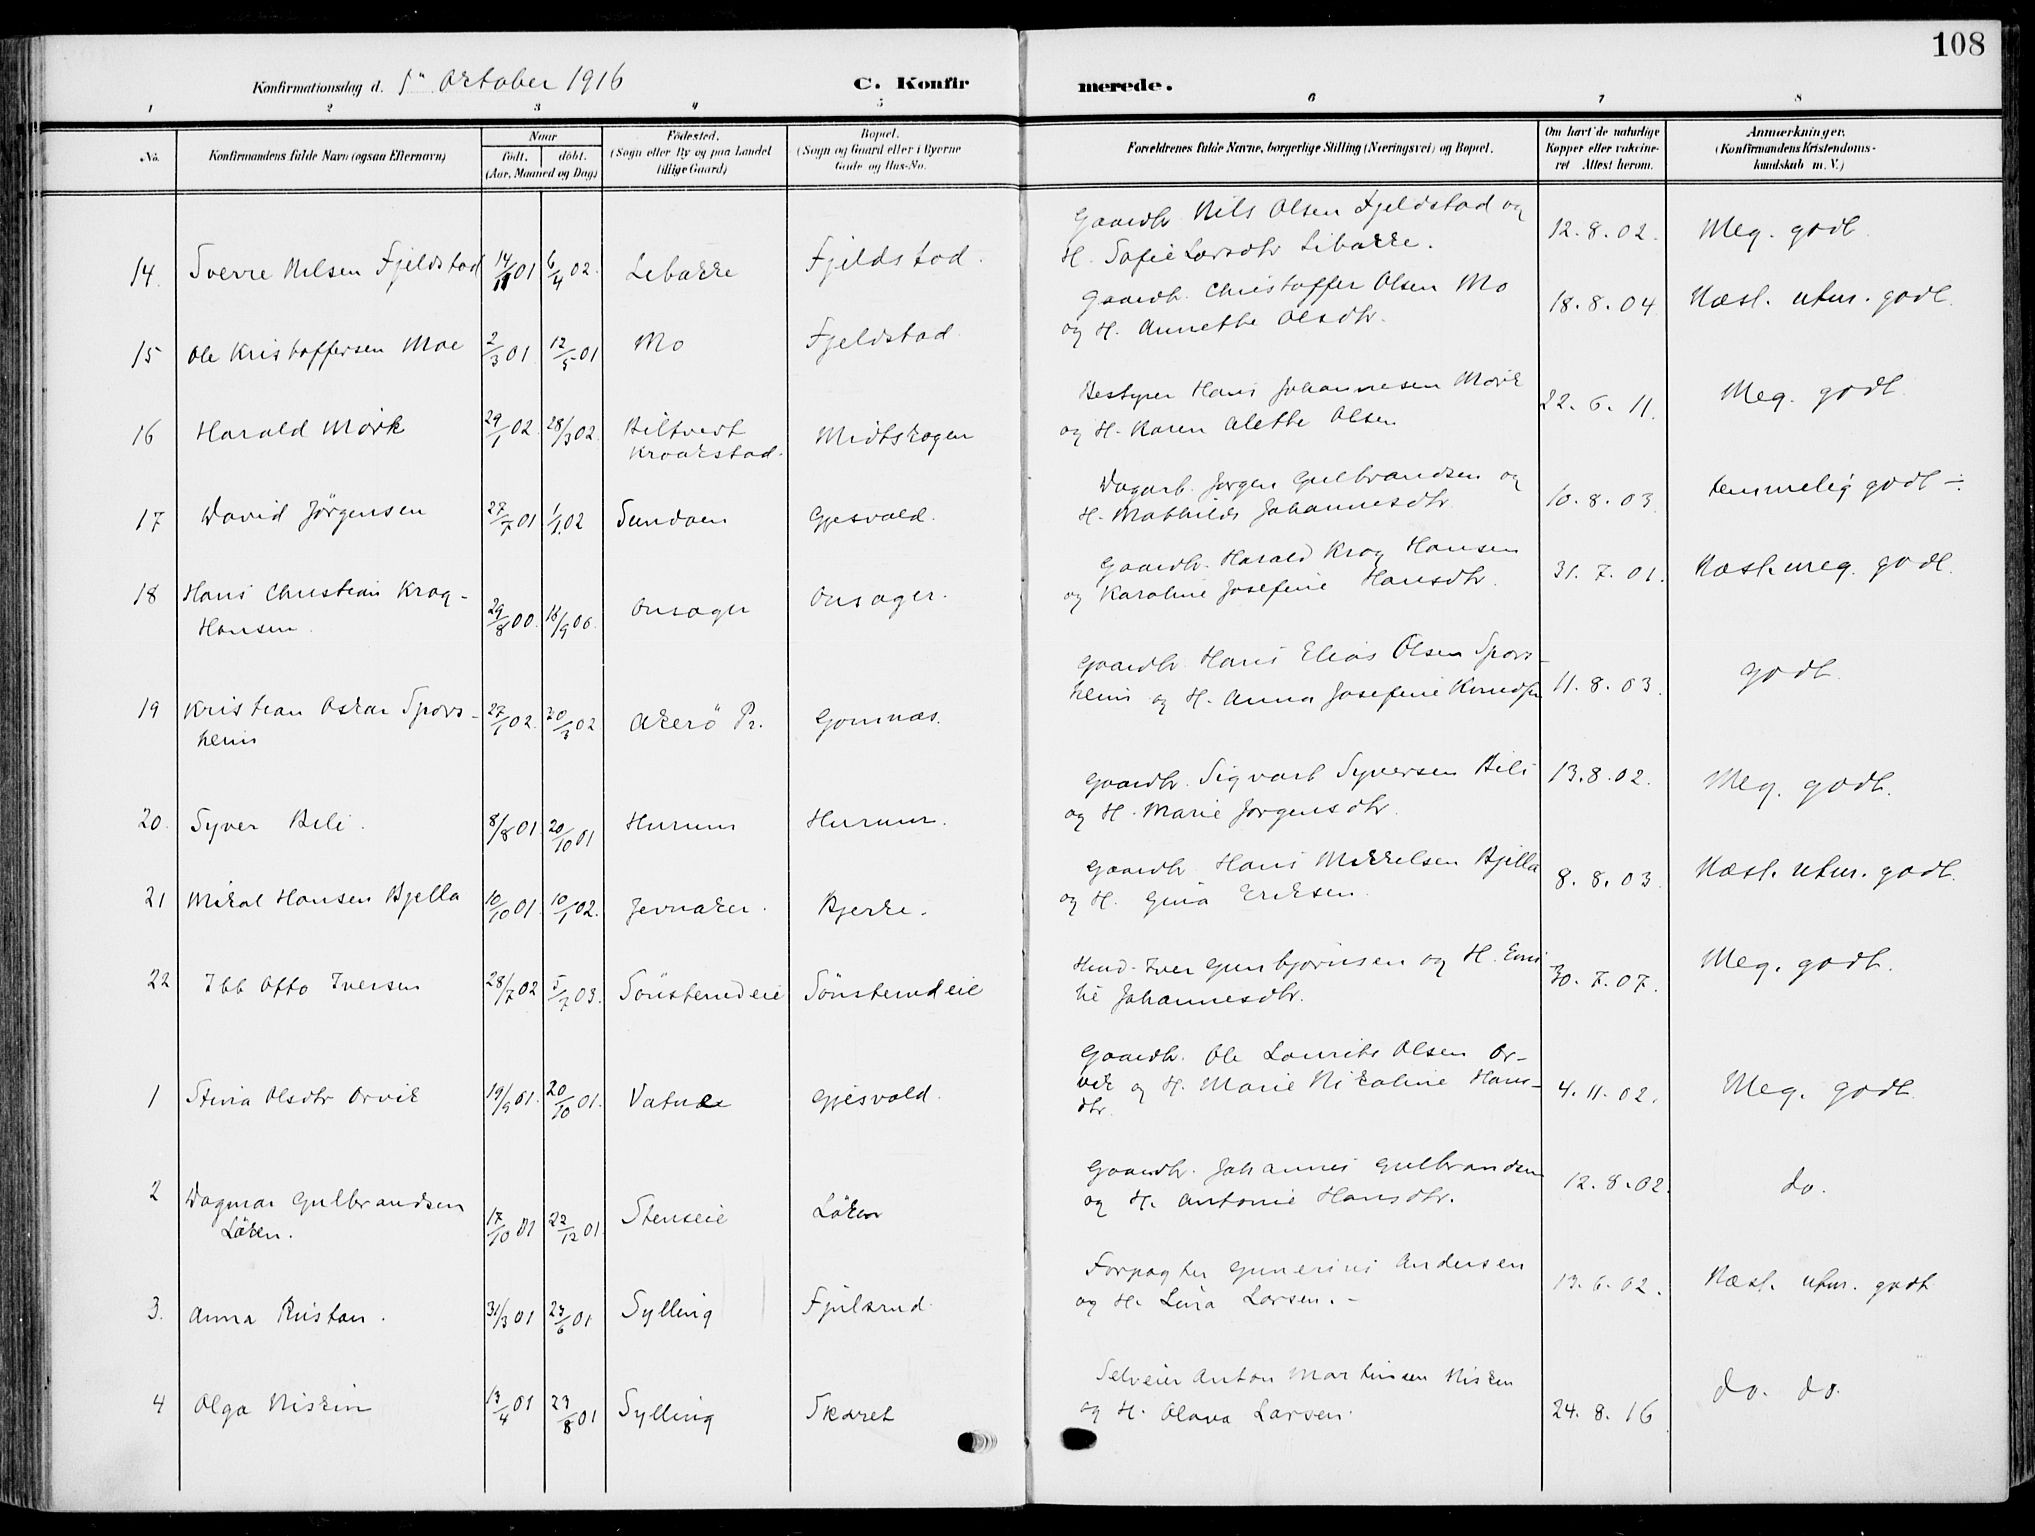 108
Konfirmationsdag d. 1n October 1916
C. Konfirmerede.
1 2 3 4 5 6 7 8
No.
Konfirmandens fulde Navn (ogsaa Efternavn)
Naar
födt. döbt.
(Aar, Maaned og Dag)
Födested.
(Sogn eller By og paa Landet
tillige Gaard)
Bopæl.
(Sogn og Gaard eller i Byerne
Gade og Hus-No.
Forældrenes fulde Navne, borgerlige Stilling (Næringsvei) og Bopæl.
Om havt de naturlige
Kopper eller vakcine-
ret Attest herom.
Anmærkninger.
(Konfirmandens Kristendoms-
kundskab m. V.)
14. Sverre Nilsen Fjeldstad 14/11 01 6/4 02. Libakke Fjeldstad.
Gaardbr. Nils Olsen Fjeldstad og
H. Sofie Larsdtr Libakke. 12.8.02. Meg. godt.
15 Ole Kristoffersen Moe 2/3 01 12/5 01 Mo Fjeldstad.
Gaardb. Christoffer Olsen Mo
og H. Annette Olsdtr. 18.8.04 Næst. utm. godt.
16 Harald Mörk 29/1 02. 28/3 02. Biltvedt
Kraakstad. Midtskogen
Bestyrer Hans Johannesen Mörk
og H. Karen Alette Olsen 22.6.11. Meg. godt.
17 David Jörgensen 27/7 01 1/1 02 Sundaen Gjesvald.
Dagarb. Jørgen Gulbrandsen og
H. Mathilde Johannesdtr 10.8.03. temmelig godt ÷.
18 Hans Christian Krog-
Hansen. 29/8 00. 16/9 00. Onsager Onsager.
Gaardbr. Harald Krog Hansen
og Karoline Josefine Hansdtr. 31.7.01. Næst. meg. godt.
19 Kristian Oskar Spors-
heim 27/1 02. 30/3 02 Akerö Pr. Gomnæs.
Gaardbr. Hans Elias Olsen Spors-
heim og H. Anna Josefine Knudsen 11.8.03. godt.
20. Syver Bili. 8/8 01 20/10 01 Hurum Hurum.
Gaardbr. Sigvart Syversen Bili
og H. Marie Jørgensdtr. 13.8.02. Meg. godt.
21 Mikal Hansen Bjella 10/10 01. 10/1 02. Jevnaker. Bjerke.
Gaardbr. Hans Mikkelsen Bjella
og H. Gina Eriksen. 8.8.03. Næst. utm. godt.
22 Ibb Otto Iversen 28/7 02 5/7 03. Sönsterudeie Sönsterudeie
Husd. Iver Gunbjørnsen og H. Emi
lie Johannesdtr. 30.7.07. Meg. godt.
1 Stina Olsdtr Orvik 19/9 01. 20/10 01. Vatne Gjesvald.
Gaardbr. Ole Laurits Olsen Or-
vik og H. Marie Nikoline Hans-
dtr. 4.11.02. Meg. godt.
2 Dagmar Gulbrandsen
Löken. 17/10 01 22/12 01. Stenseie Löken
Gaardbr. Johannes Gulbrandsen
og H. Antonie Hansdtr. 12.8.02. do.
3. Anna Rustan. 31/3 01 23/6 01 Sylling Fjulsrud.
Forpagter Gunerius Andersen
og H. Lina Larsen. 13.6.02. Næst. utm. godt
4 Olga Niskin 13/4 01 23/8 01 Sylling Skaret
Selveier Anton Martinsen Niskin
og H. Olava Larsen. 24.8.16 do. do.